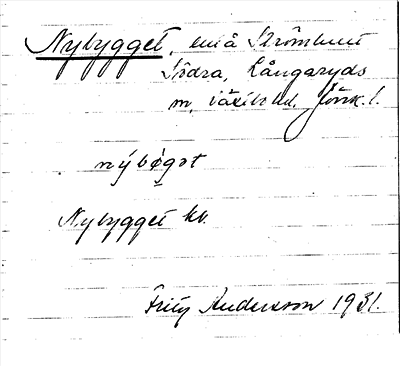 Nybygget, enl å Strömhult
Södra, Långaryds
sn, Västbo hd, Jönk. l.
nýbøgat
Nybygget kv.
Fritz Anderson 1931.